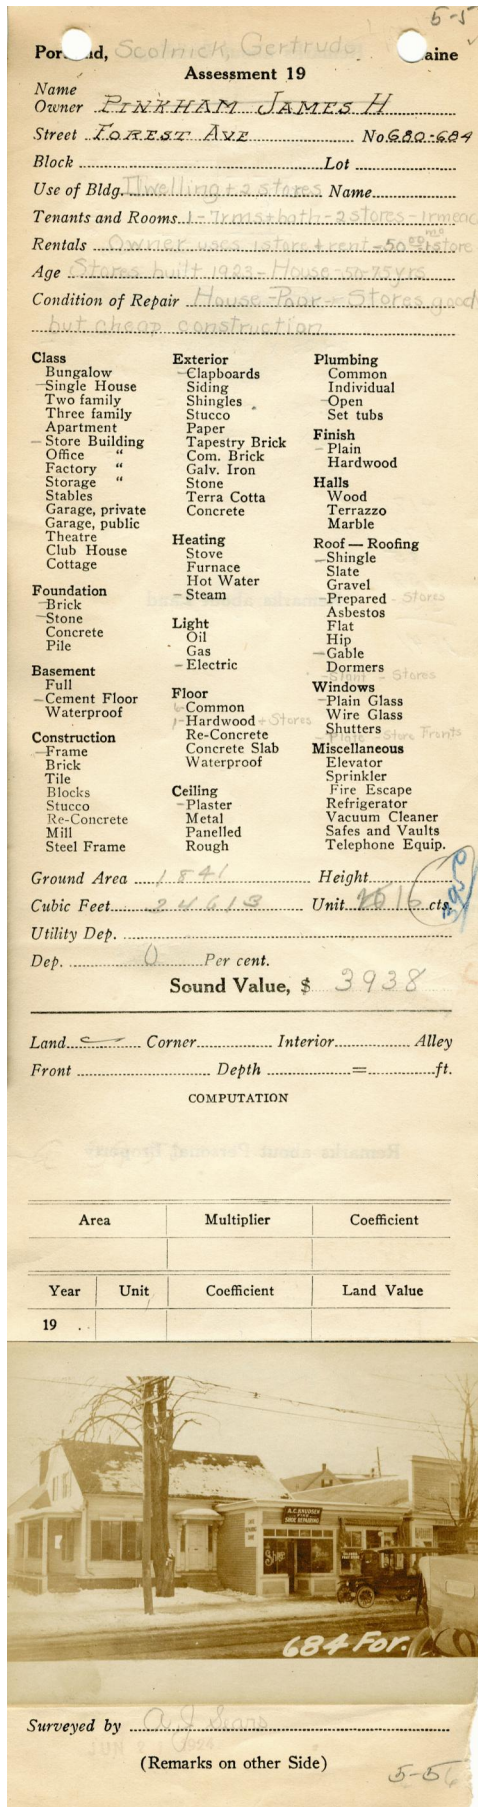 5-5
Portland, Scolnick, Gertrude Maine
Assessment 19
Name
Owner PINKHAM JAMES H
Street FOREST AVE No 680-684
Block Lot
Use of Bldg. Dwelling + 2 stores Name
Tenants and Rooms 1-7rms+bath-2 stores-1rm each
Rentals Owner uses 1 store + rent -50 1 store
Age Stores built 1923-House-50-75yrs
Condition of Repair House-Poor-Stores good
but cheap construction
Class
Bungalow
Single House
Two family
Three family
Apartment
Store Building
Office "
Factory "
Storage "
Stables
Garage, private
Garage, public
Theatre
Club House
Cottage
Foundation
Brick
Stone
Concrete
Pile
Basement
Full
Cement Floor
Waterproof
Construction
Frame
Brick
Tile
Blocks
Stucco
Re-Concrete
Mill
Steel Frame
Exterior
Clapboards
Siding
Shingles
Stucco
Paper
Tapestry Brick
Com. Brick
Galv. Iron
Stone
Terra Cotta
Concrete
Heating
Stove
Furnace
Hot Water
Steam
Light
Oil
Gas
Electric
Floor
6- Common
1- Hardwood + Stores
Re-Concrete
Concrete Slab
Waterproof
Ceiling
Plaster
Metal
Panelled
Rough
Plumbing
Common
Individual
Open
Set tubs
Finish
Plain
Hardwood
Halls
Wood
Terrazzo
Marble
Roof — Roofing
Shingle
Slate
Gravel
Prepared - Stores
Asbestos
Flat
Hip
Gable
Dormers
-Slant - Stores
Windows
Plain Glass
Wire Glass
Shutters
- Plate - Store Fronts
Miscellaneous
Elevator
Sprinkler
Fire Escape
Refrigerator
Vacuum Cleaner
Safes and Vaults
Telephone Equip.
Ground Area 1841 Height
Cubic Feet 24613 Unit 16 cts. 3950
Utility Dep.
Dep. 0 Per cent.
Sound Value, $ 3938
Land Corner Interior Alley
Front Depth = ft.
COMPUTATION
Area Multiplier Coefficient
Year Unit Coefficient Land Value
19
A.C. KNUDSEN
FINE
SHOE REPAIRING
Shoe
684 For.
Surveyed by A J Sears
JUN 2 1924
(Remarks on other Side)
5-56